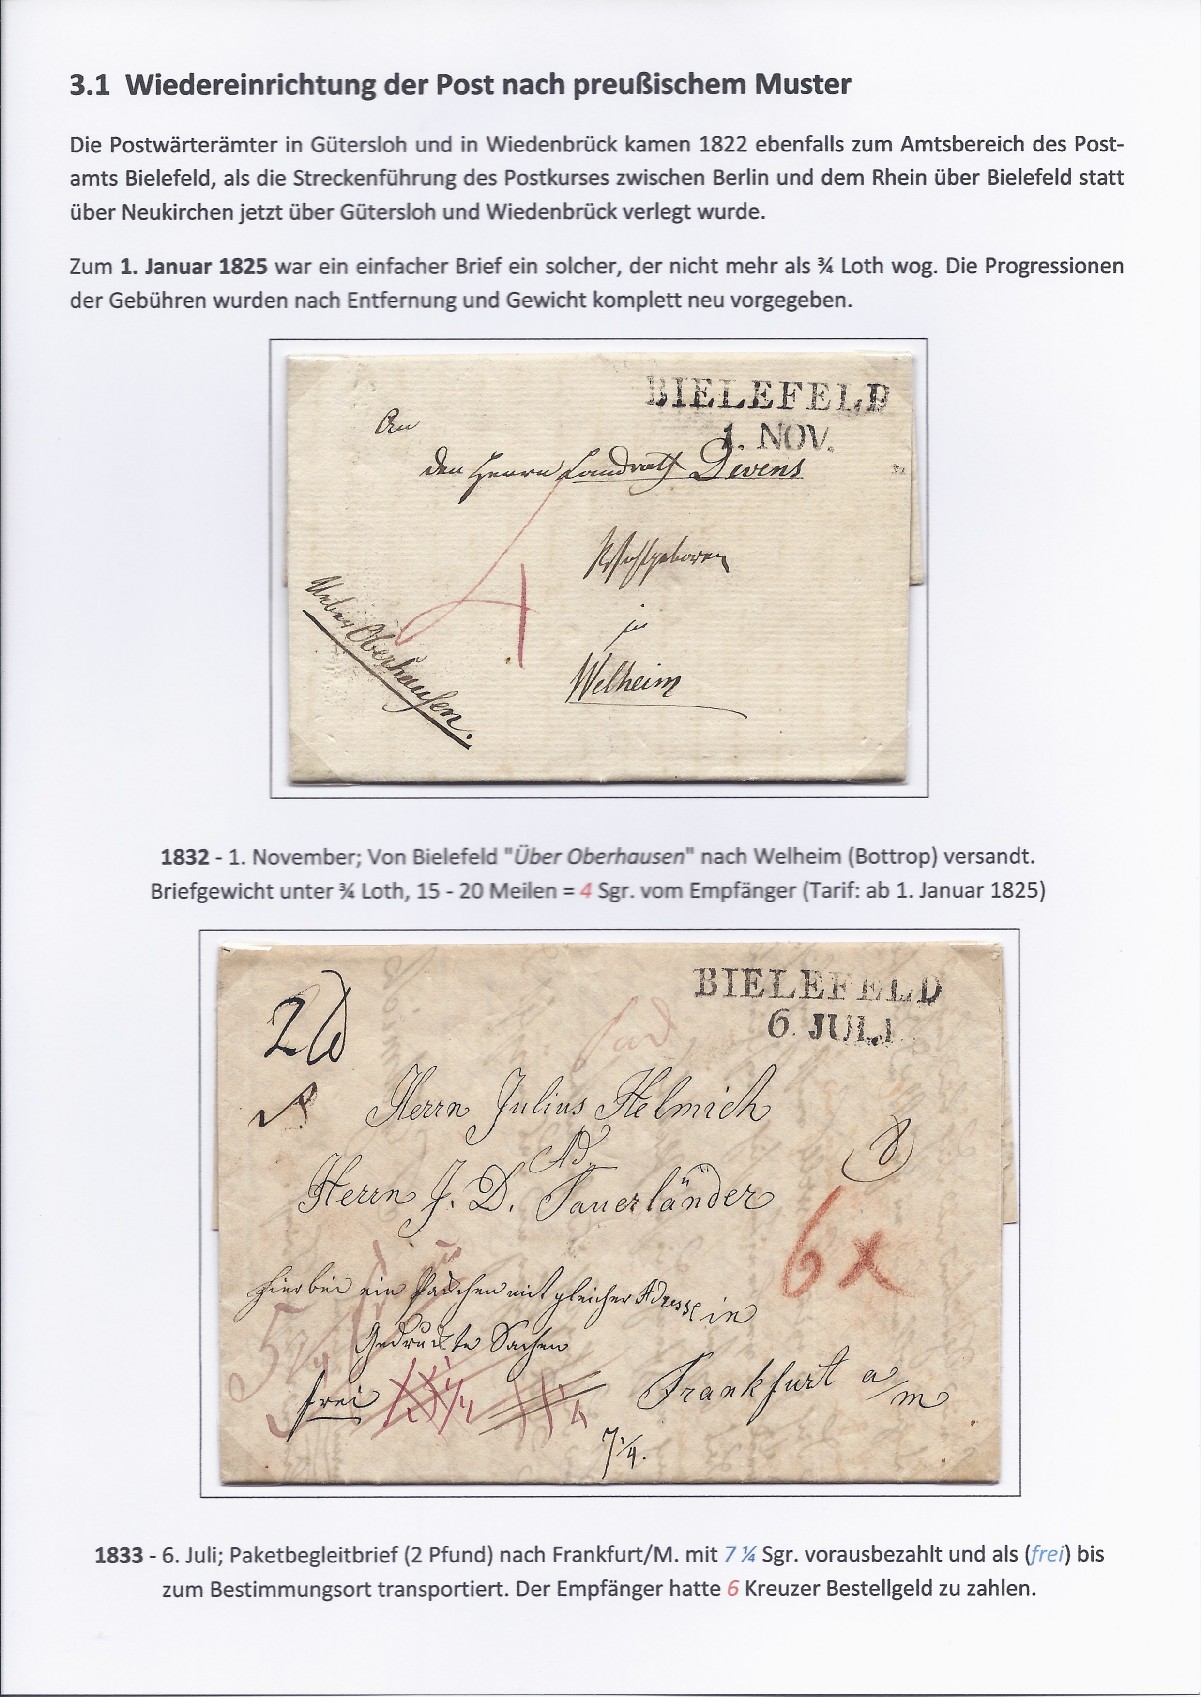 3.1 Wiedereinrichtung der Post nach preußischem Muster
Die Postwärterämter in Gütersloh und in Wiedenbrück kamen 1822 ebenfalls zum Amtsbereich des Post-
amts Bielefeld, als die Streckenführung des Postkurses zwischen Berlin und dem Rhein über Bielefeld statt
über Neukirchen jetzt über Gütersloh und Wiedenbrück verlegt wurde.
Zum 1. Januar 1825 war ein einfacher Brief ein solcher, der nicht mehr als ¾ Loth wog. Die Progressionen
der Gebühren wurden nach Entfernung und Gewicht komplett neu vorgegeben.
BIELEFELD
1. NOV.
An
den Herrn Landrath Devens
4
zu
Welheim
Ueber Oberhausen.
1832 - 1. November; Von Bielefeld "Über Oberhausen" nach Welheim (Bottrop) versandt.
Briefgewicht unter ¾ Loth, 15 - 20 Meilen = 4 Sgr. vom Empfänger (Tarif: ab 1. Januar 1825)
BIELEFELD
6. JULI
Herrn Julius Helmich
Ad.
Herrn J. D. Sauerländer
6x
hierbei ein Päckchen mit gleicher Adresse in
Gedruckte Sachen
frei
Frankfurt a/m
7¼.
1833 - 6. Juli; Paketbegleitbrief (2 Pfund) nach Frankfurt/M. mit 7 ¼ Sgr. vorausbezahlt und als (frei) bis
zum Bestimmungsort transportiert. Der Empfänger hatte 6 Kreuzer Bestellgeld zu zahlen.